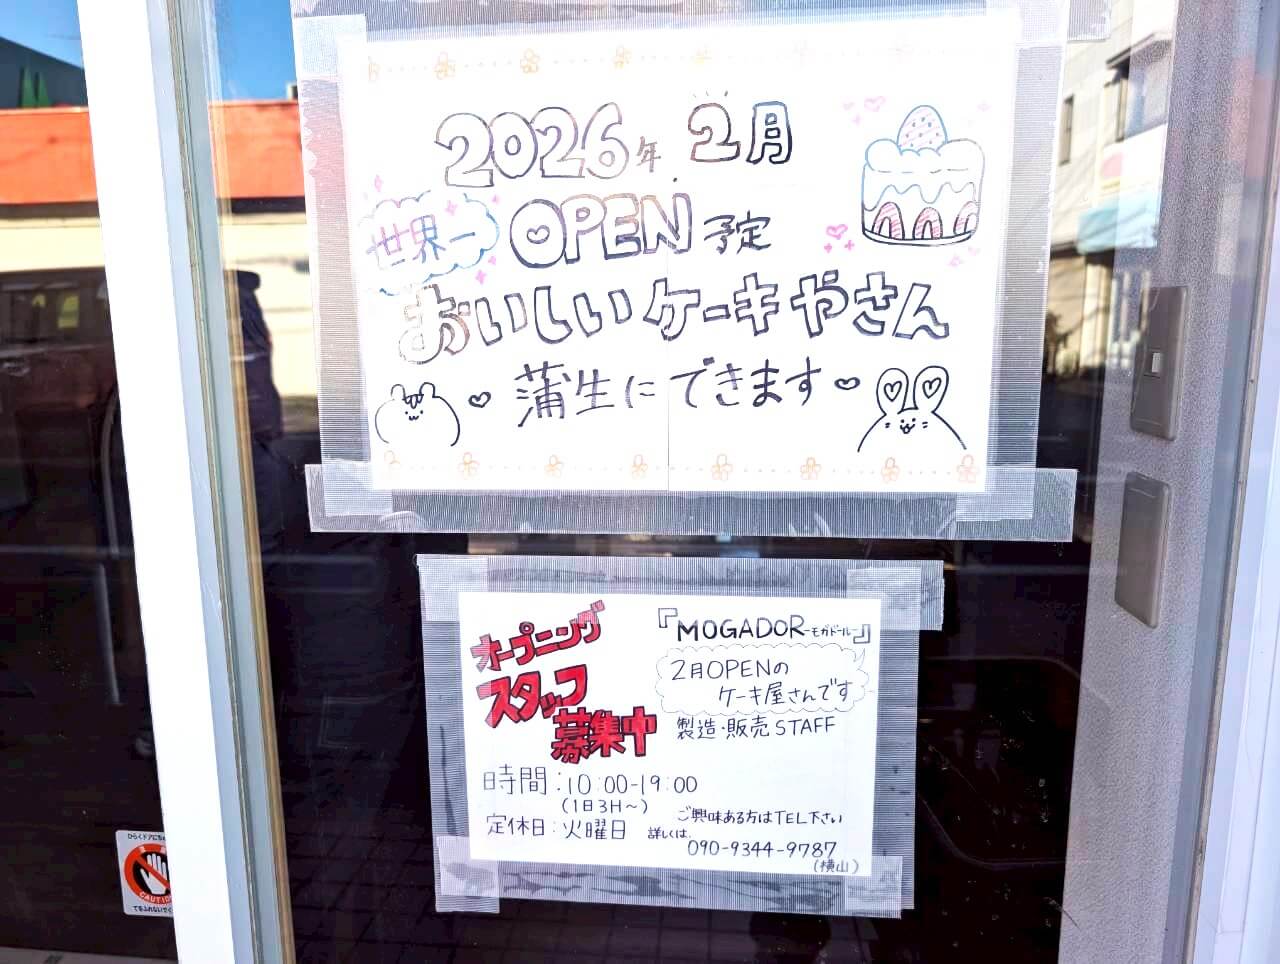 2026年 2月
世界一
OPEN予定
おいしいケーキやさん
蒲生にできます
オープニング
スタッフ
募集中
『MOGADOR-モガドール-』
2月OPENの
ケーキ屋さんです
製造・販売STAFF
時間:10:00-19:00
(1日3H〜)
定休日:火曜日
ご興味ある方はTEL下さい
詳しくは、
090-9344-9787
(横山)
CAUTION